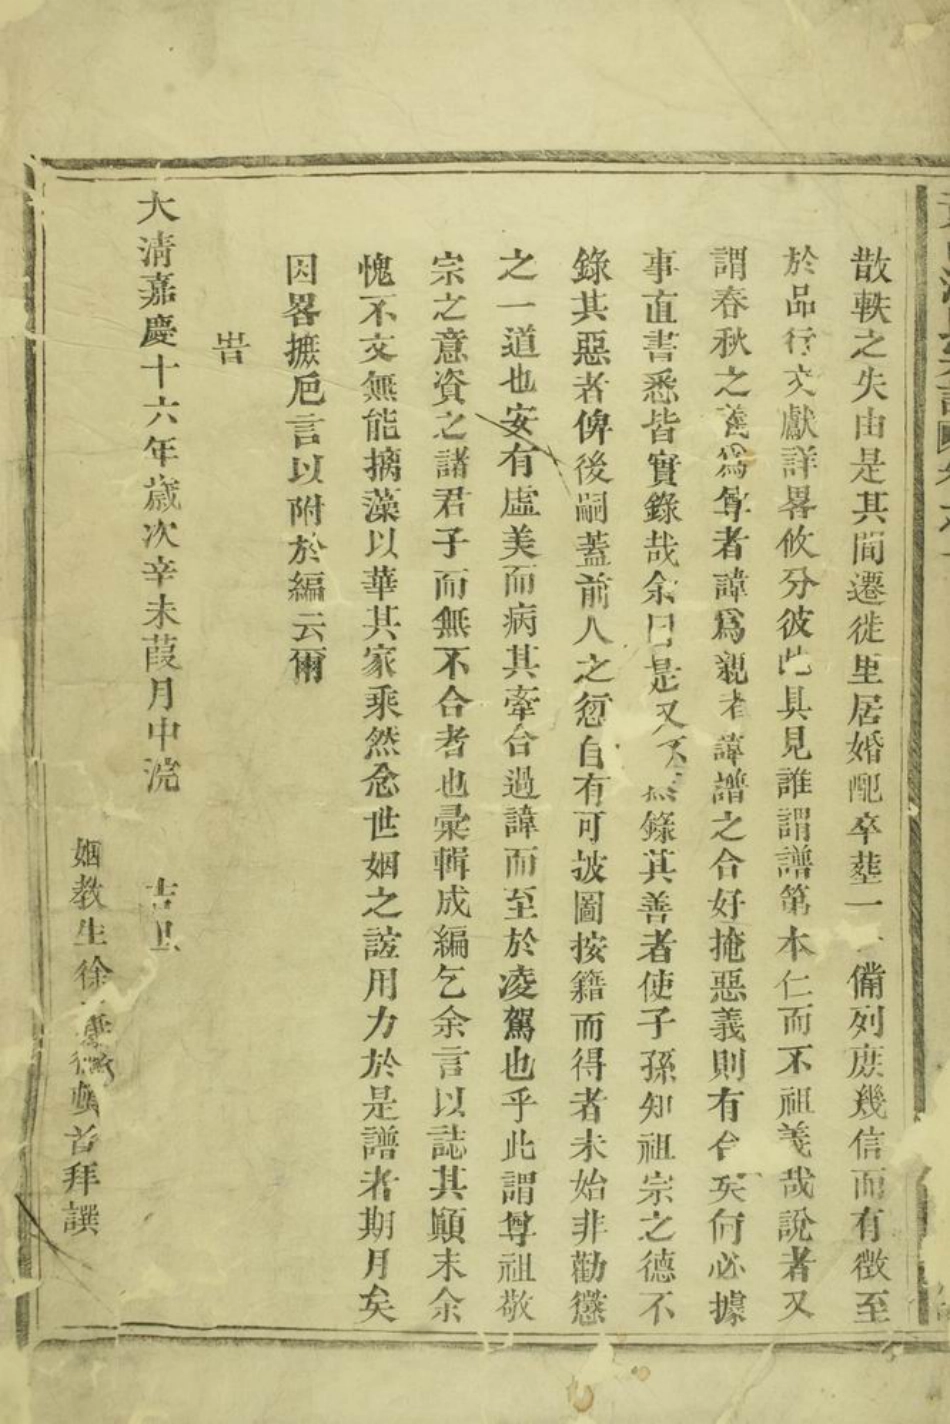 散軼之失由是其間遷徙里居婚配卒塟一一備列庶幾信而有徵至
於品行文獻詳畧攸分彼此具見誰謂譜第本仁而不祖義哉說者又
謂春秋之義爲尊者諱爲親者諱譜之合好掩惡義則有合矣何必據
事直書悉皆實錄哉余曰是又不然錄其善者使子孫知祖宗之德不
錄其惡者俾後嗣蓋前人之愆自有可披圖按籍而得者未始非勸懲
之一道也安有虛美而病其牽合過諱而至於凌駕也乎此謂尊祖敬
宗之意資之諸君子而無不合者也彙輯成編乞余言以誌其顚末余
愧不文無能摛藻以華其家乘然念世姻之誼用力於是譜者期月矣
因畧摭巵言以附於編云爾
旹
大清嘉慶十六年歲次辛未葭月中浣 吉旦
姻教生徐頓首拜譔